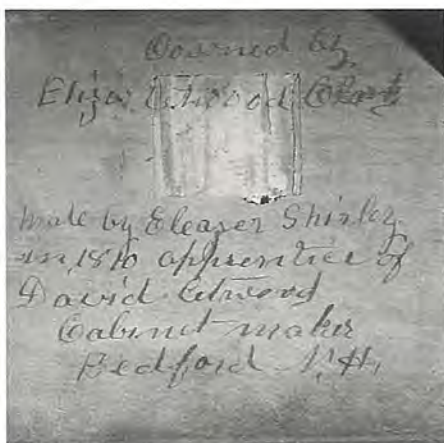 Owned by
Eliza Atwood Clark
Made by Eleazer Shirley
in 1810 apprentice of
David Atwood
Cabinet maker
Bedford N.H.